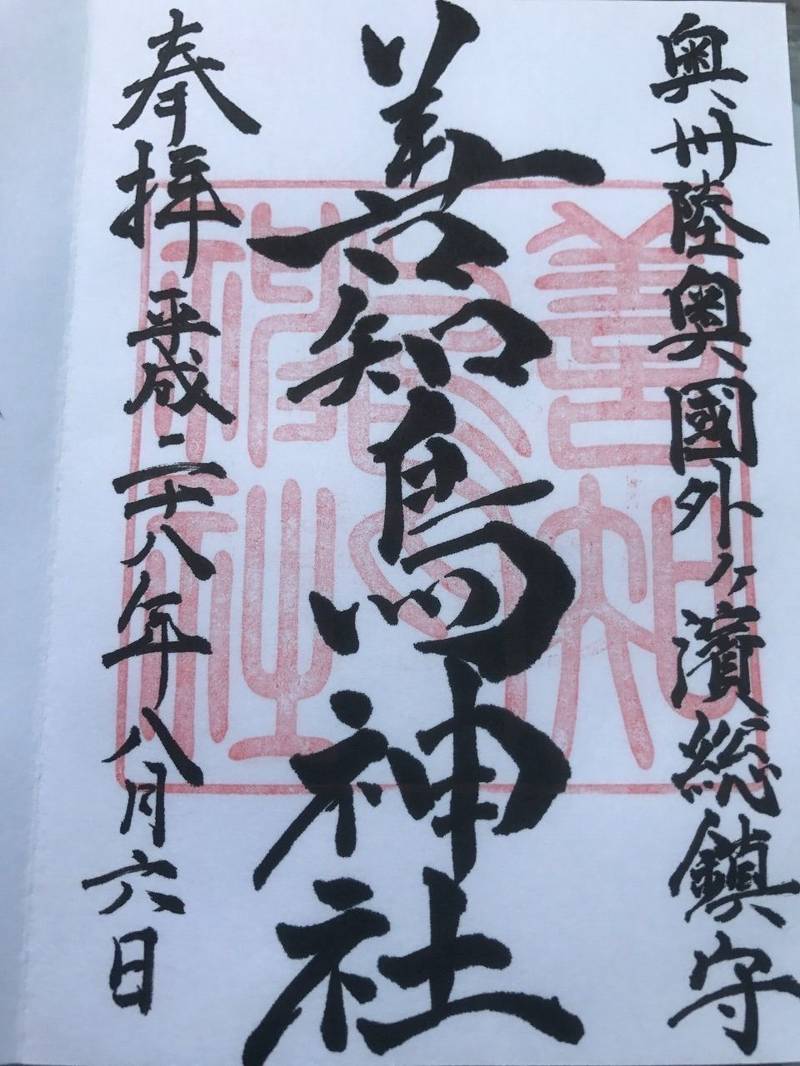 奥州陸奥國外ヶ濱総鎮守
善知鳥神社
奉拝 平成二十八年八月六日
善知鳥神社